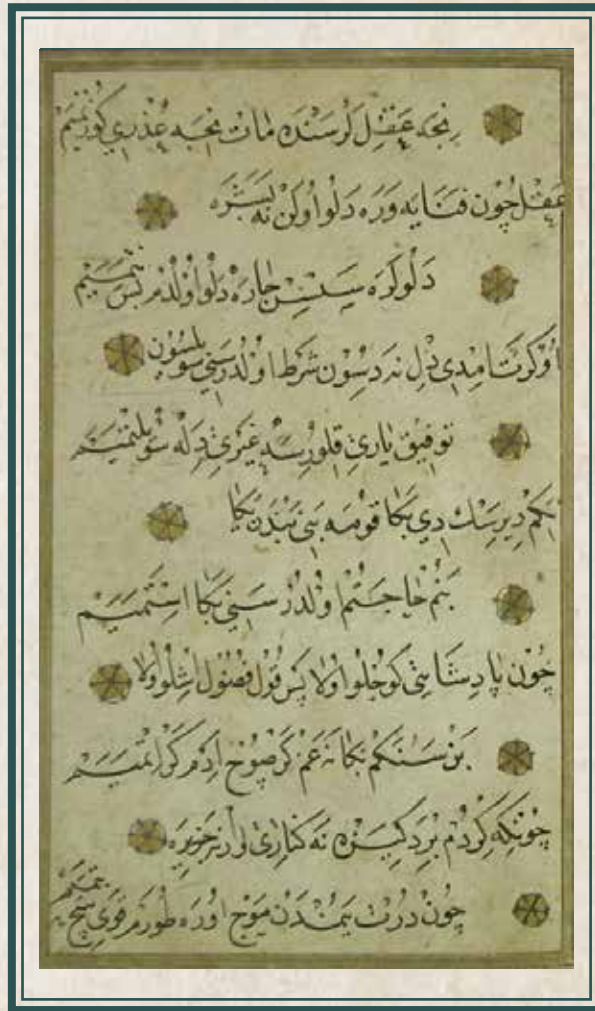 نِجَه عَقِل لَر سَنْدَه مَات نِجَه عُذْرِي كَوزتميَم
عَقِل چُون فَنَايَه وَرَه دَلُو اُولَن نَه بَشَرَه
دَلُو لَرَه سِنْسِن چارَه دَلُو اُولْدُم بَس نتميَم
اوُكَرت اِمدِي دِل نَه دِسُون شَرط اُولْدُر سَنِي سُويْلَسُون
تَوفِيق يَارِي قِلُورسَه غَيْرِي دِلَه سُويْلَتميَم
اِنكِم دِيرسِك دِي بَكَا قُومَه بَنِي بَندَن بَكَا
بَنُم حَاجَتُم اُولْدُر سَنِي بَكَا اِستَميَم
چُون پَادِشَاسِي كُوجلُو اُولَا پَس قُول فُضُول اِشلُو اُولَا
بَن سَنُكَم بَكَا نَه غَم كَر صُوچ اِدَم كَر اِتميَم
چُونكِه كِردُم بُر دَكِزَه نَه كَنارِي وَار نَه جَزِيرَه
چُون دُرت يَمُندَن مَوج اُورَه طُورَم قَوِي